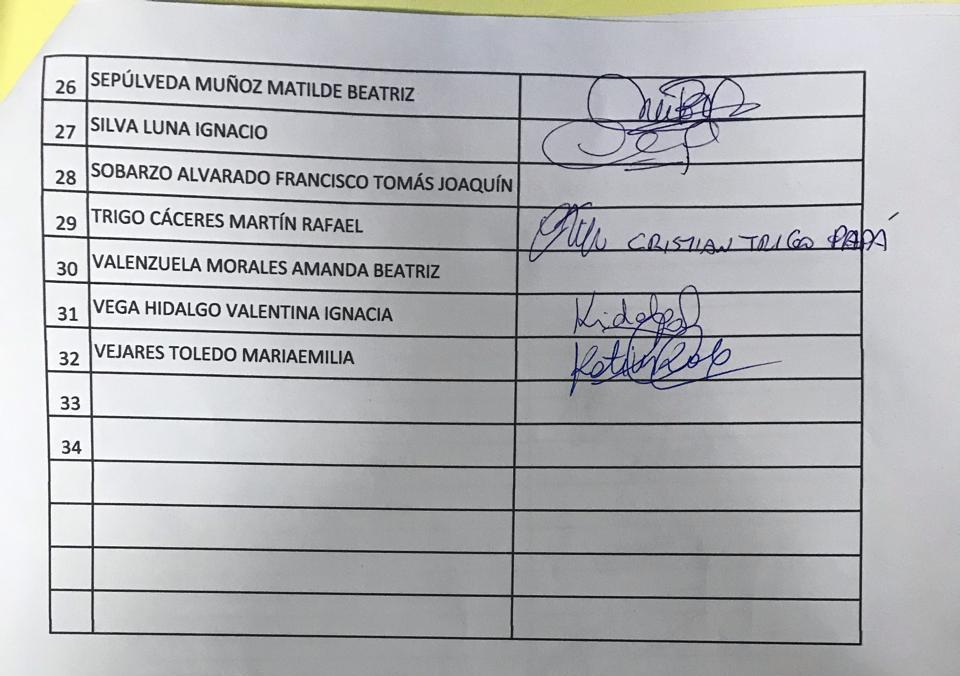 26 SEPÚLVEDA MUÑOZ MATILDE BEATRIZ
27 SILVA LUNA IGNACIO
28 SOBARZO ALVARADO FRANCISCO TOMÁS JOAQUÍN
29 TRIGO CÁCERES MARTÍN RAFAEL CRISTIAN TRIGO PAPÁ
30 VALENZUELA MORALES AMANDA BEATRIZ
31 VEGA HIDALGO VALENTINA IGNACIA
32 VEJARES TOLEDO MARIAEMILIA
33
34